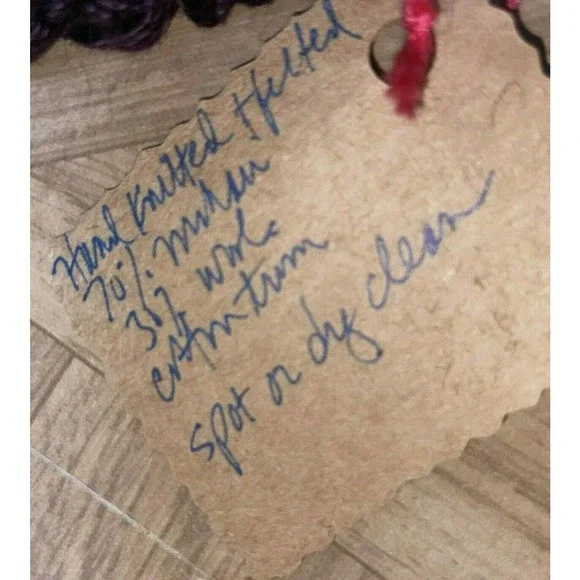 Hand Knitted & felted
70% mohair
30% wool
cotton trim
spot or dry clean